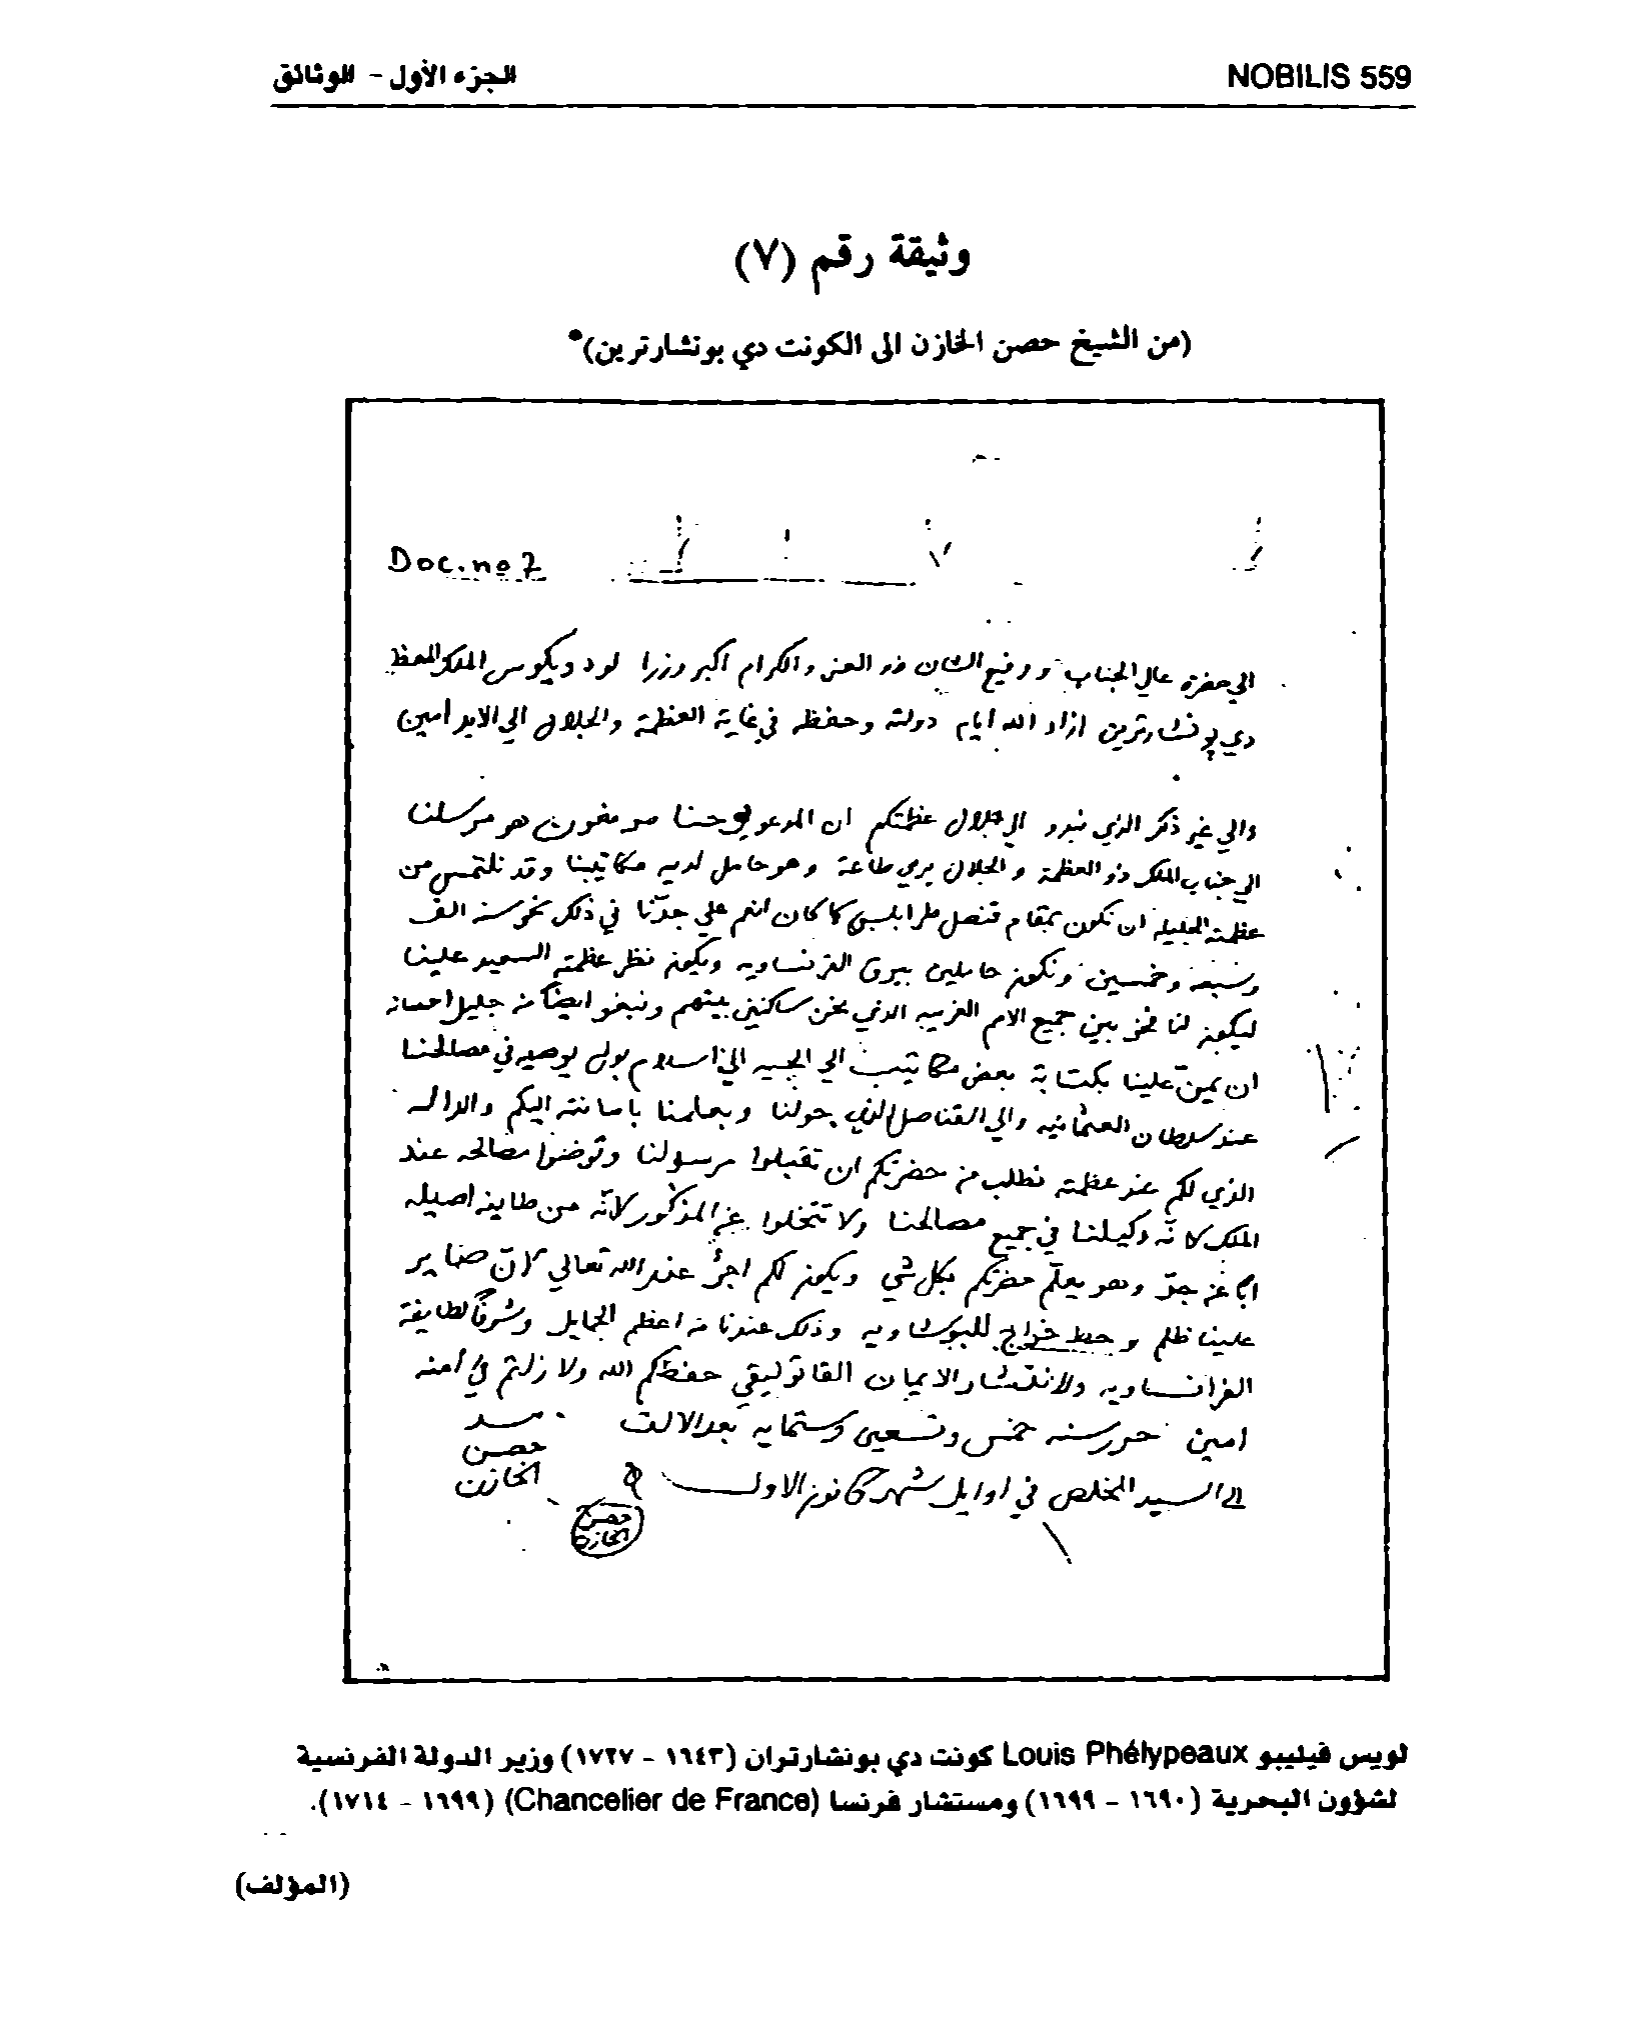 NOBILIS 559
الجزء الأول - الوثائق
وثيقة رقم (٧)
(من الشيخ حصن الخازن الى الكونت دي بونشارترين)*
Doc. no 7
الي حضرة عالي الجناب ورفيع الشان ذو العز والاكرام اكبر وزرا لودويكوس الملك المعظم
دي بونشارترين ازاد الله ايام دولته وحفظه في غاية العظمة والجلال الي الابد امين
والي غير ذكر الذي نبدو الي جلال عظمتكم ان المدعو يوحنا هو مرسلنا
الي جناب الملك ذو العظمة والجلال يدي طاعة وهو حامل لديه مكاتيبنا وقد نلتمس من
عظمته الجليله ان نكون بمقام قنصل كما كان انعم علي جدنا في ذلك نحو سنه الف
وخمسين ونكون حاملين بيرق الفرنساويه ويكون نظر عظمته السعيد علينا
ليكون لنا فخر بين جميع الامم الغريبه الذي نحن ساكنين بينهم ونبغو ايضاً من جليل احسانه
ان يمن علينا بكتابة بعض مكاتيب الي الجيه الي اسلامبولي يوصيه في مصالحنا
عند سلطان العثمانيه والي القناصل الذي حولنا اليكم والداله
الذي لكم عند عظمته نطلب من حضرتكم ان تقبلوا مرسولنا وتوضوا مصالحه عند
الملك كانه وكيلنا في جميع مصالحنا ولا تتخلوا عن المذكور لانه من طايفه اصيله
اباً عن جد وهو يعلم حضرتكم بكل شي ويكون لكم اجر عند الله تعالي لان صاير
علينا ظلم وحط خراج وذلك عندنا من اعظم الجمايل وشرفاً لطايفة
الفرانساويه ولانتشار الايمان القاتوليقي حفظكم الله ولا زلتم في امنه
امين حرر سنه خمس وتسعين وستمايه بعد الالف
السيد المخلص في اوايل شهر كانون الاول
حصن
الخازن
حصن
الخازن
لويس فيليبو Louis Phélypeaux كونت دي بونشارتران (١٦٤٣ - ١٧٢٧) وزير الدولة الفرنسية
لشؤون البحرية (١٦٩٠ - ١٦٩٩) ومستشار فرنسا (Chancelier de France) (١٦٩٩ - ١٧١٤).
(المؤلف)